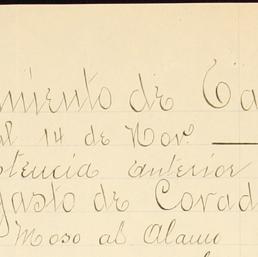 miento de Ca
al 14 de Nov.
stencia anterior
gasto de Corad
Moso al Alamo